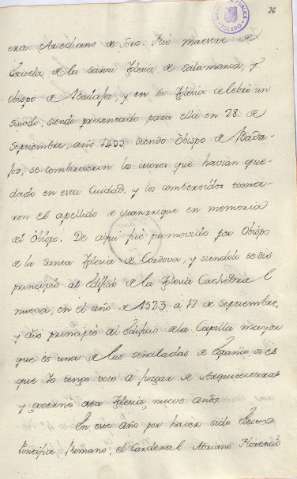 era Arcediano de Toro. Fué maestre de
Escuela de la santa Iglesia de Salamanca, y
obispo de Badajoz, y en su Iglesia celebró un
Sínodo, siendo presentado para ella en 28 de
Septiembre, año 1499 siendo Obispo de Bada-
joz, se combirtieron los moros que havian que-
dado en esta Ciudad, y los combertidos toma-
ron el apellido de manrique en memoria
del Obispo. De aqui fué promovido por Obispo
de la Santa Iglesia de Cordova, y siendolo se dió
principio al Edificio de la Iglesia Cathedral
nueva, en el año de 1523 a 7 de Septiembre,
y dió principio al Edificio de la Capilla mayor
que es una de las señaladas de España, si es
que yo tengo voto a juzgar de Arquitectura
y governó esta Iglesia, nueve años.
En este año por haver sido electo
Pontifice Romano, el Cardenal Adriano Florencio